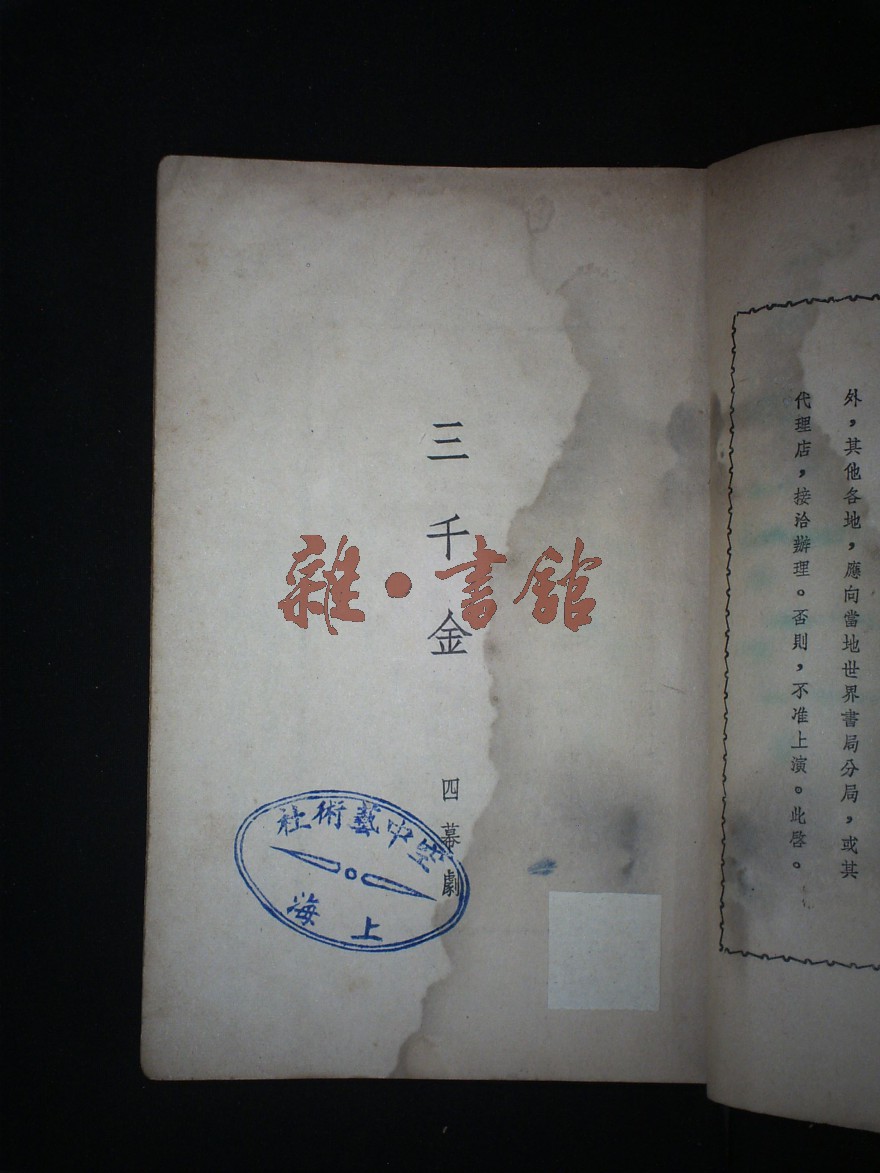 外，其他各地，應向當地世界書局分局，或其
代理店，接洽辦理。否則，不准上演。此啓。
三千金
四幕劇
雜·書館
空中藝術社
上海